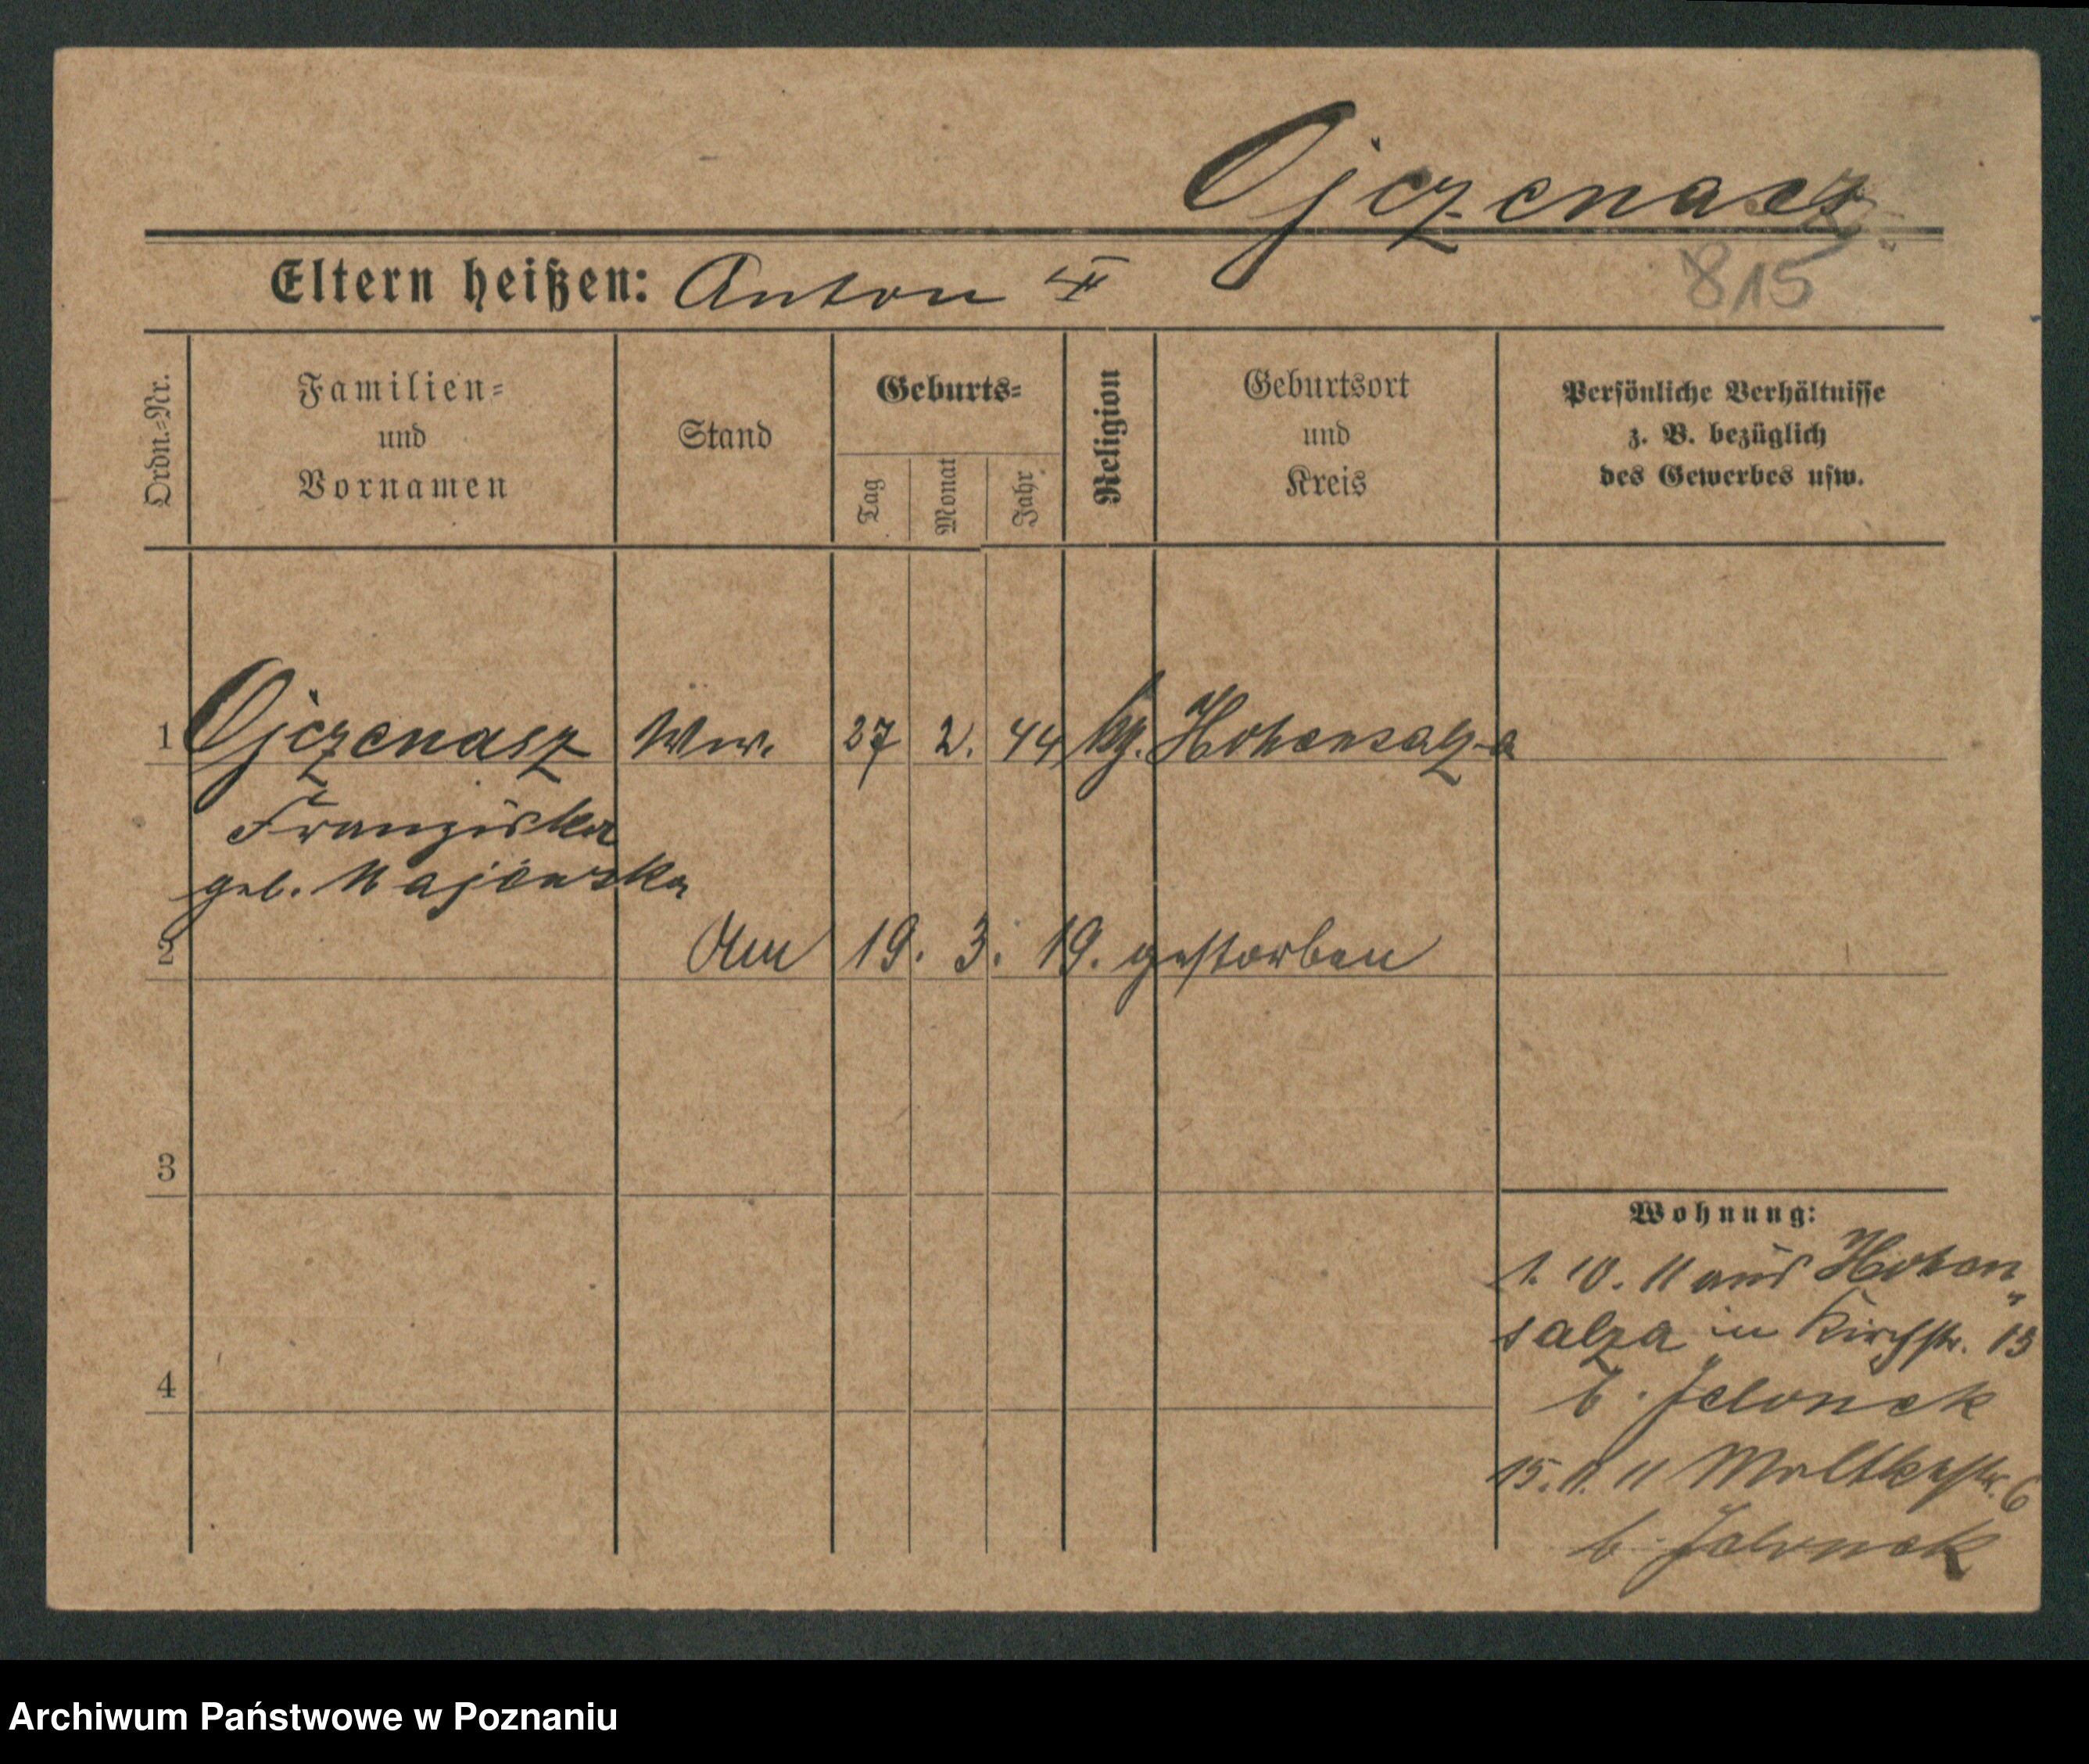 Ojczenasz
Eltern heißen: Anton
815
Ordn.-Nr.
Familien-
und
Vornamen
Stand
Geburts-
Tag
Monat
Jahr
Religion
Geburtsort
und
Kreis
Persönliche Verhältnisse
z. B. bezüglich
des Gewerbes usw.
1 Ojczenasz Ww. 27 2. 44 kg. Hohensalza
Franziska
geb. Majewska
2 Am 19. 3. 19. gestorben
3
Wohnung:
1. 10. 11 aus Hohen
salza in Kirchstr. 13
4
b. Jelonek
15. 11. 11 Moltkestr. 6
b. Jelonek
Archiwum Państwowe w Poznaniu